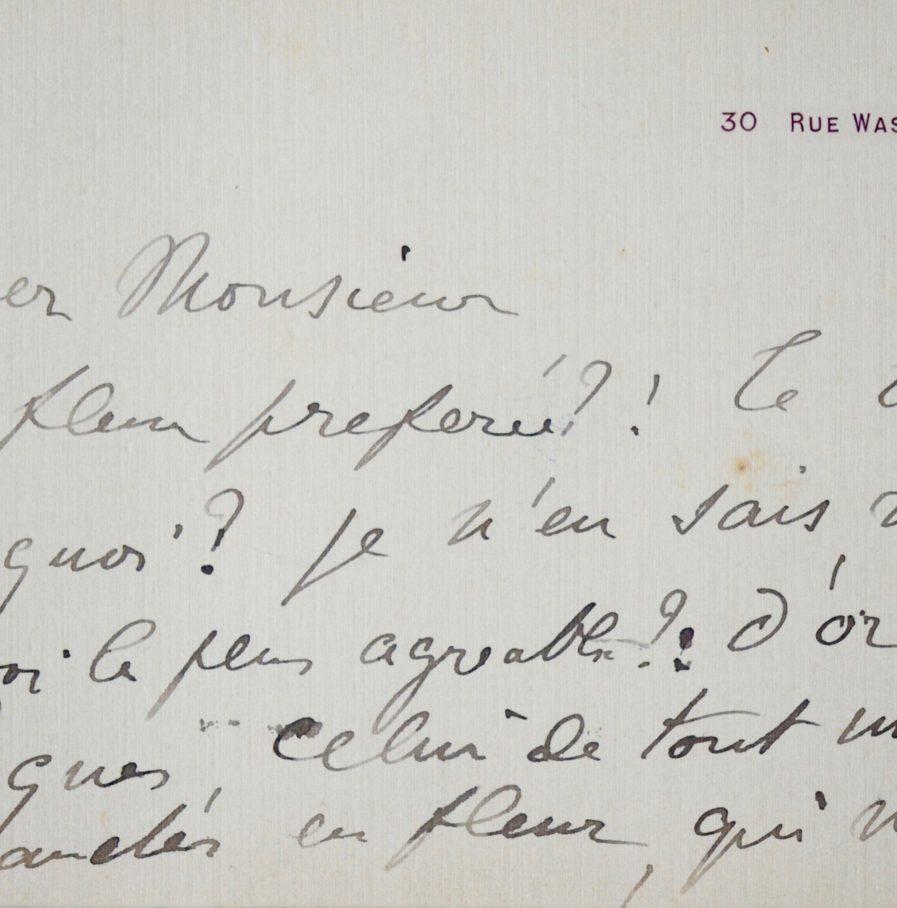 30 RUE WAS
er Monsieur
fleur preferée?! Le
quoi? je n'en sais
oi le plus agreable?? d'or
ques, celui de tout
en fleur, qui